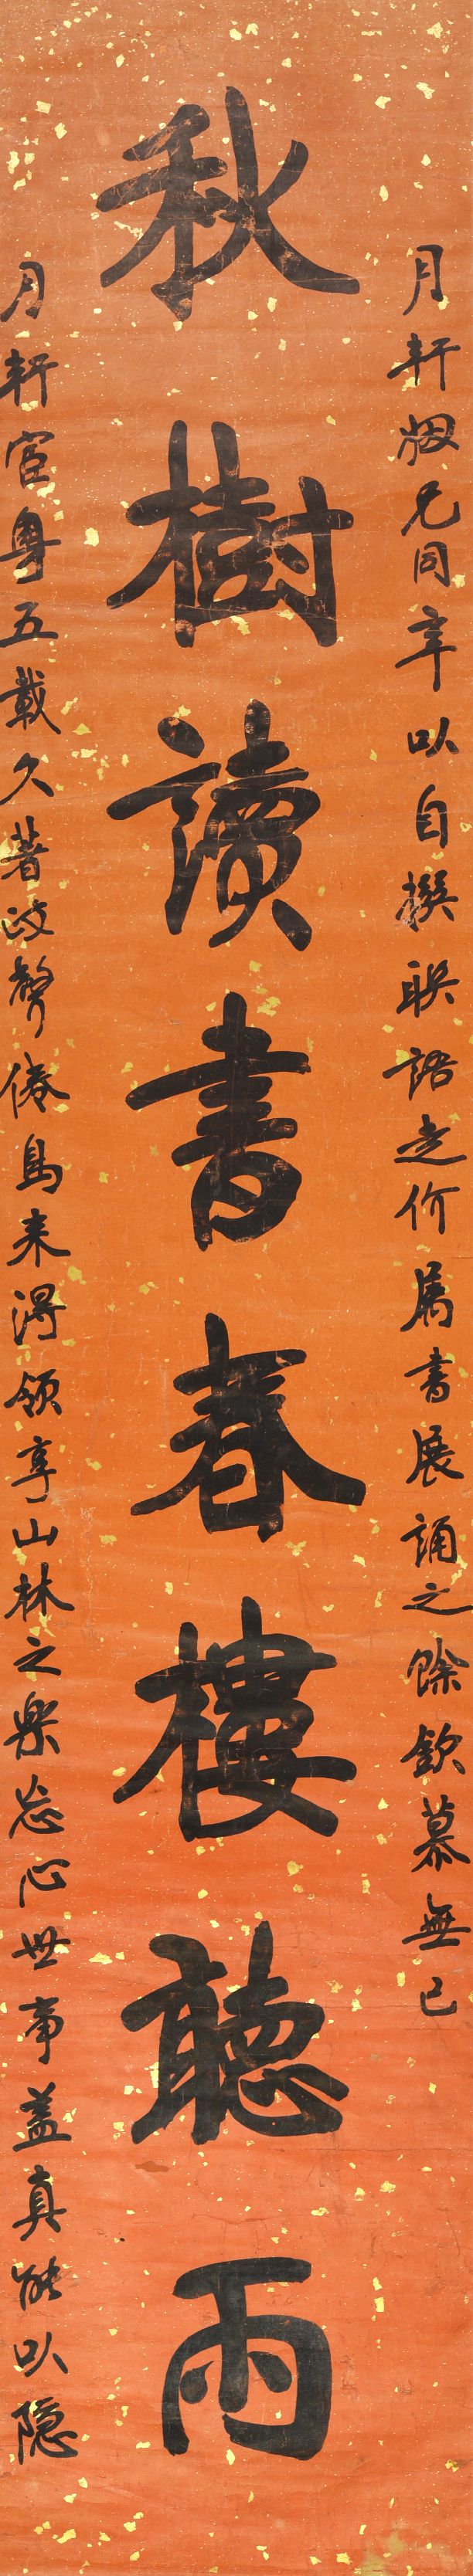 月軒姻兄同年以自撰聯語走价屬書展誦之餘欽慕無已
秋樹讀書春樓聽雨
月軒宦粵五載久著政聲倦鳥來歸領享山林之樂忘心世事蓋真能以隱